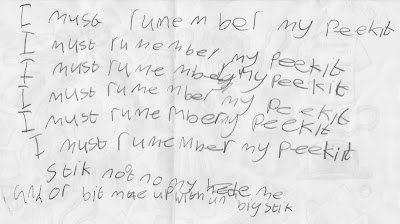 I must rumember my peekit
I must rumember my peekit
I must rumember my peekit
I must rumember my peekit
I must rumember my peekit
I must rumember my peekit
stik not no my me
and or bit me up with un big stik